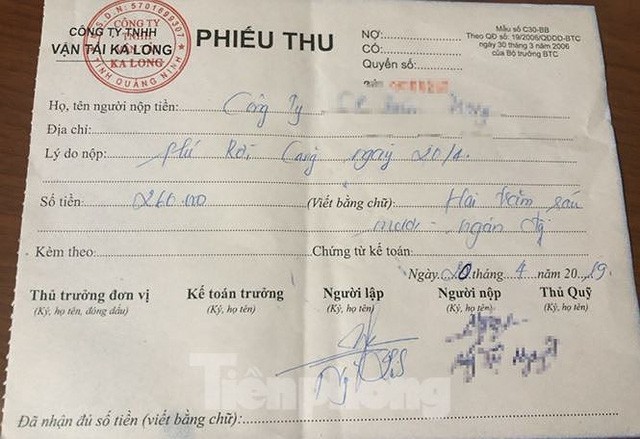 CÔNG TY TNHH
VẬN TẢI KA LONG
M.S.D.N: 5701699307
CÔNG TY
TNHH
VẬN TẢI
KA LONG
TỈNH QUẢNG NINH
PHIẾU THU
NỢ:
CÓ:
Quyển số:
Mẫu số C30-BB
Theo QĐ số: 19/2006/QĐDD-BTC
ngày 30 tháng 3 năm 2006
của Bộ trưởng BTC
Họ, tên người nộp tiền: Công Ty
Địa chỉ:
Lý do nộp: phí Rời Cảng ngày 20/4.
Số tiền: 260.000 (Viết bằng chữ): Hai trăm sáu
mươi ngán
Kèm theo: Chứng từ kế toán:
Ngày 20 tháng 4 năm 2019.
Thủ trưởng đơn vị Kế toán trưởng Người lập Người nộp Thủ Quỹ
(Ký, họ tên, đóng dấu) (Ký, họ tên) (Ký, họ tên) (Ký, họ tên) (Ký, họ tên)
Tiền phong
Đã nhận đủ số tiền (viết bằng chữ):